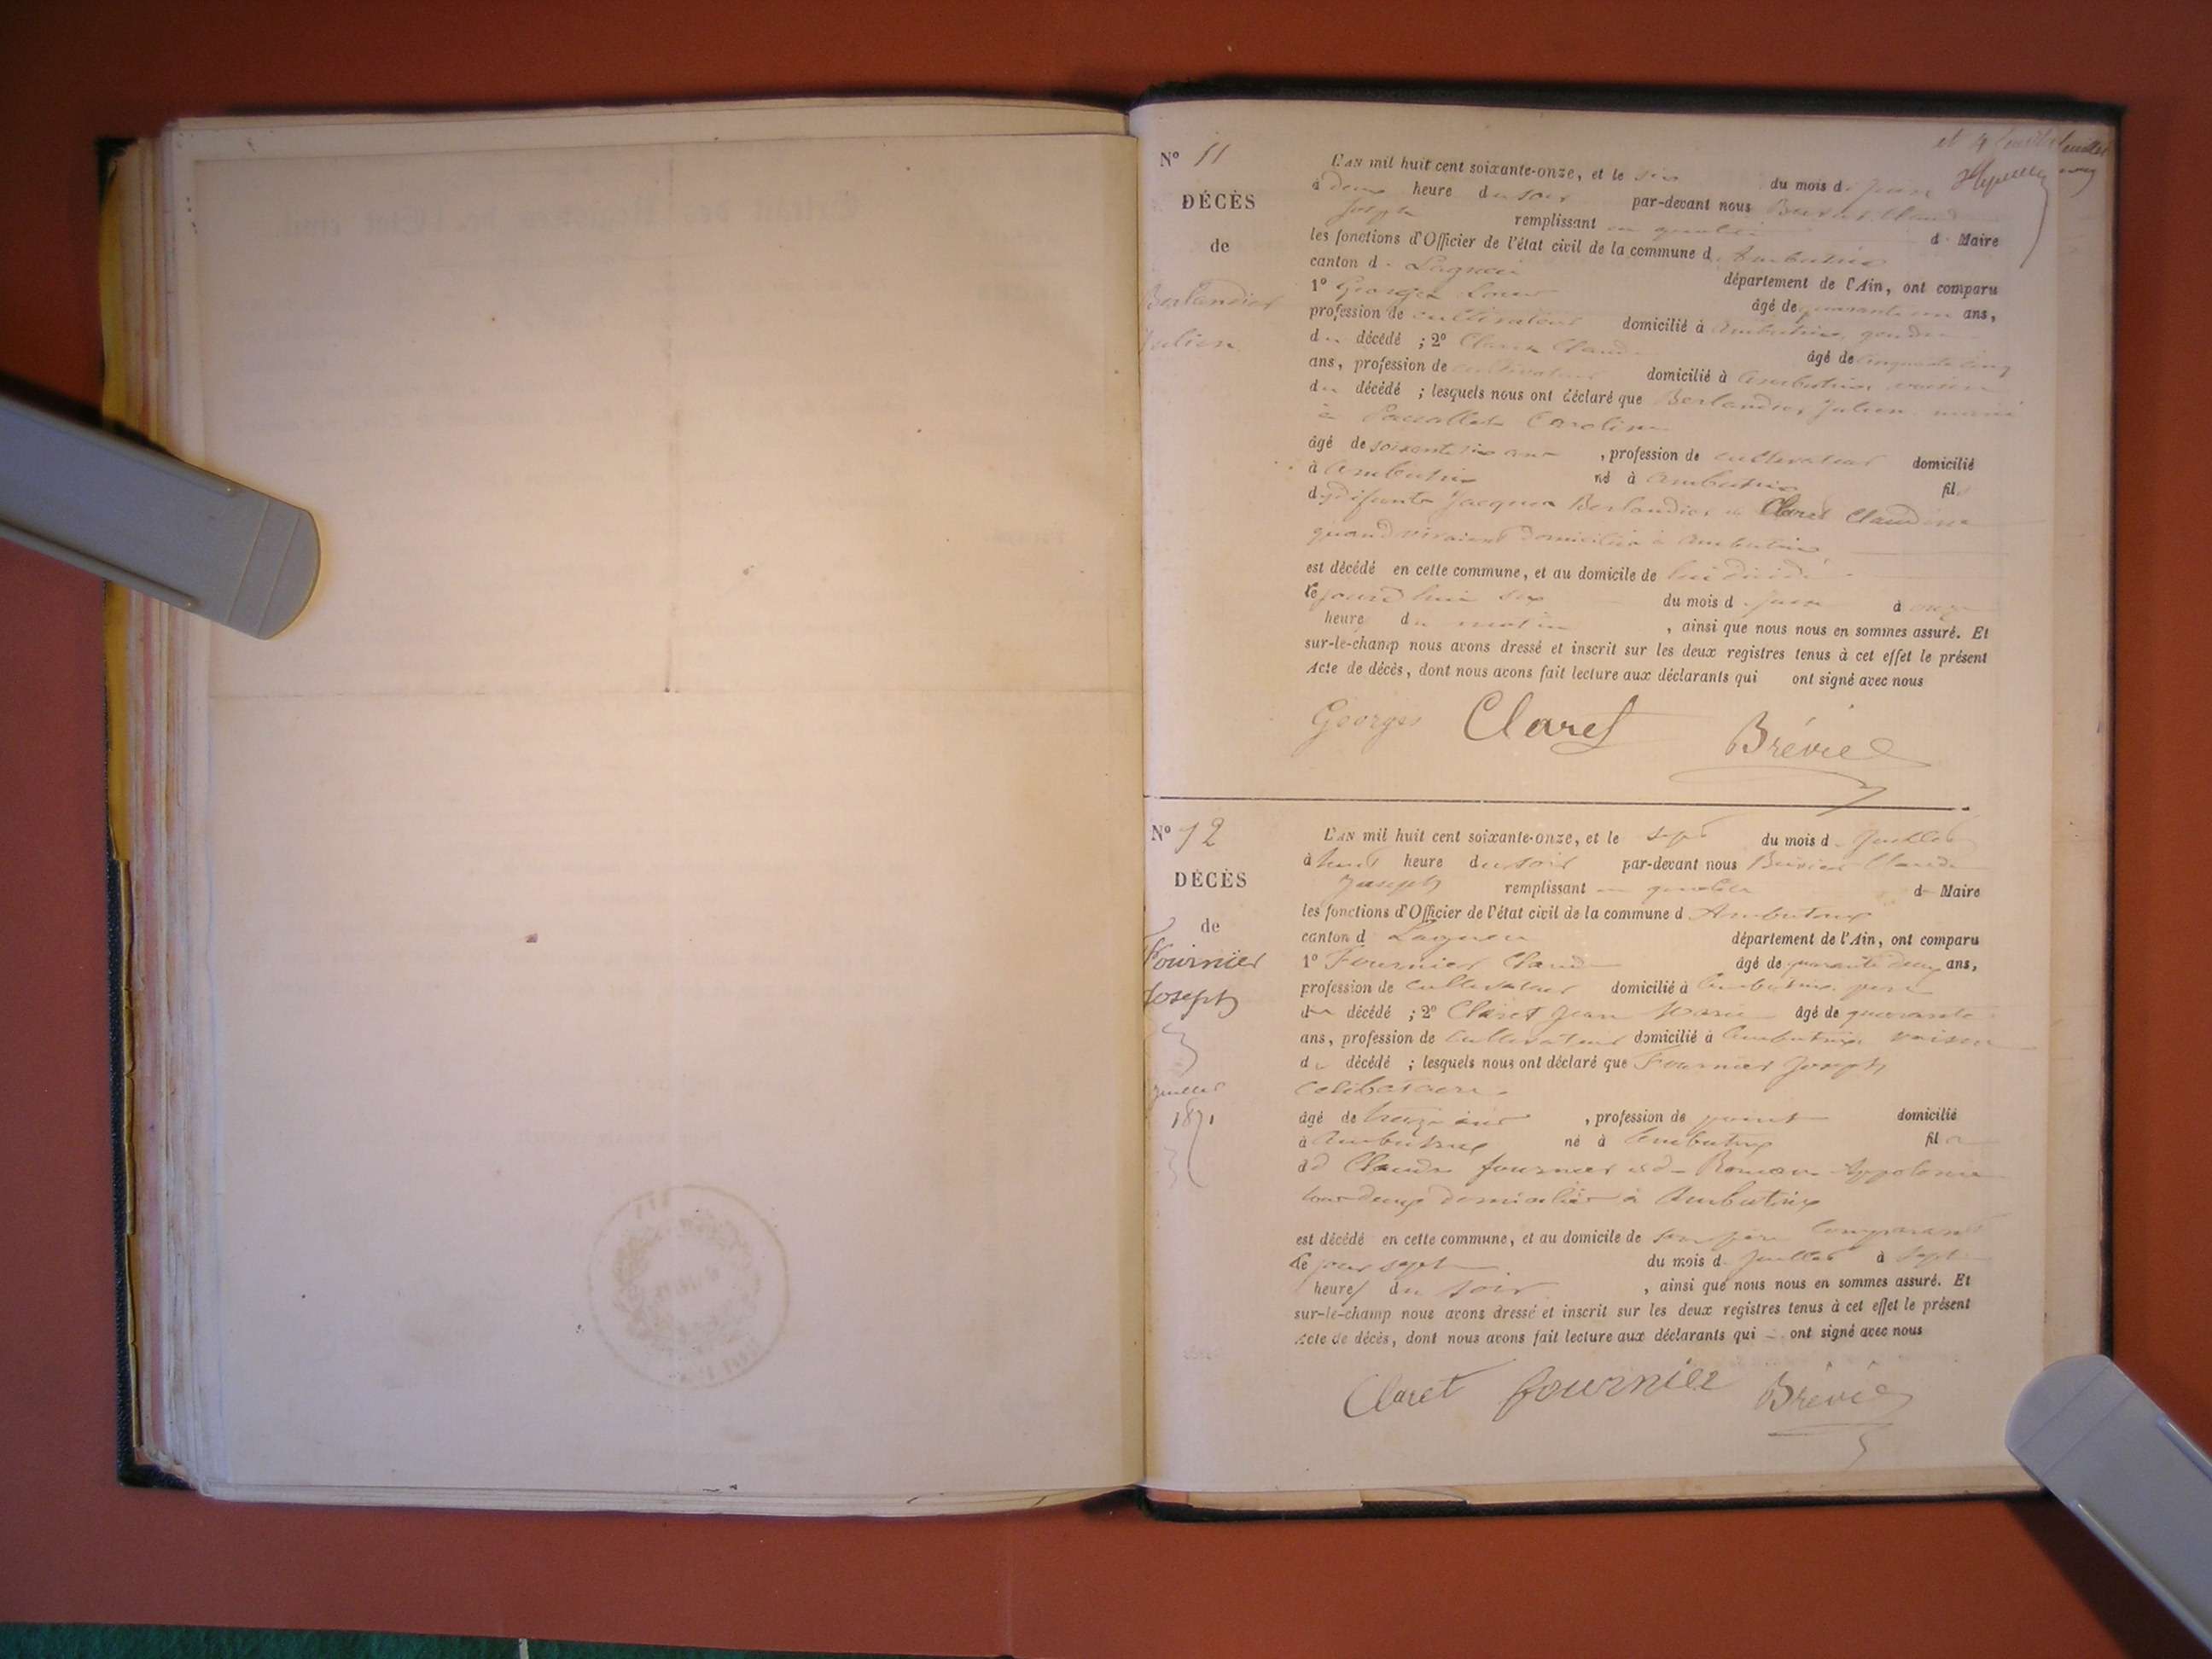 et 4
N° 11
DÉCÈS
de
Berlandier
Julien
L'AN mil huit cent soixante-onze, et le six du mois d. Juin
à deux heure du soir par-devant nous Brevet Claude
Joseph remplissant en qualité d. Maire
les fonctions d'Officier de l'état civil de la commune d'Ambutrix
canton d. Lagnieu département de l'Ain, ont comparu
1° Georges Louis âgé de quarante un ans,
profession de cultivateur domicilié à Ambutrix, gendre
du décédé ; 2° Claret Claude âgé de cinquante cinq
ans, profession de cultivateur domicilié à Ambutrix voisin
du décédé ; lesquels nous ont déclaré que Berlandier Julien marié
à Caroline
âgé de soixante six ans , profession de cultivateur domicilié
à Ambutrix né à Ambutrix fils
de défunts Jacques Berlandier et Claret Claudine
quand vivaient domiciliés à Ambutrix
est décédé en cette commune, et au domicile de lui décédé
le jourd'hui six du mois d. Juin à onze
heure du matin , ainsi que nous nous en sommes assuré. Et
sur-le-champ nous avons dressé et inscrit sur les deux registres tenus à cet effet le présent
Acte de décès, dont nous avons fait lecture aux déclarants qui ont signé avec nous
Georges Claret Brévet
N° 12
DÉCÈS
de
Fournier
Joseph
Juillet
1871
L'AN mil huit cent soixante-onze, et le sept du mois d. Juillet
à huit heure du soir par-devant nous Brevet Claude
Joseph remplissant en qualité d. Maire
les fonctions d'Officier de l'état civil de la commune d Ambutrix
canton d Lagnieu département de l'Ain, ont comparu
1° Fournier Claude âgé de quarante deux ans,
profession de cultivateur domicilié à Ambutrix père
du décédé ; 2° Claret Jean Marie âgé de quarante
ans, profession de cultivateur domicilié à Ambutrix voisin
du décédé ; lesquels nous ont déclaré que Fournier Joseph
celibataire
âgé de treize ans , profession de domicilié
à Ambutrix né à Ambutrix fils
de Claude fournier et de Appolonie
tous deux domiciliés à Ambutrix
est décédé en cette commune, et au domicile de son père comparant
le jour sept du mois d. Juillet à sept
heures du soir , ainsi que nous nous en sommes assuré. Et
sur-le-champ nous avons dressé et inscrit sur les deux registres tenus à cet effet le présent
Acte de décès, dont nous avons fait lecture aux déclarants qui ont signé avec nous
Claret fournier Brévet